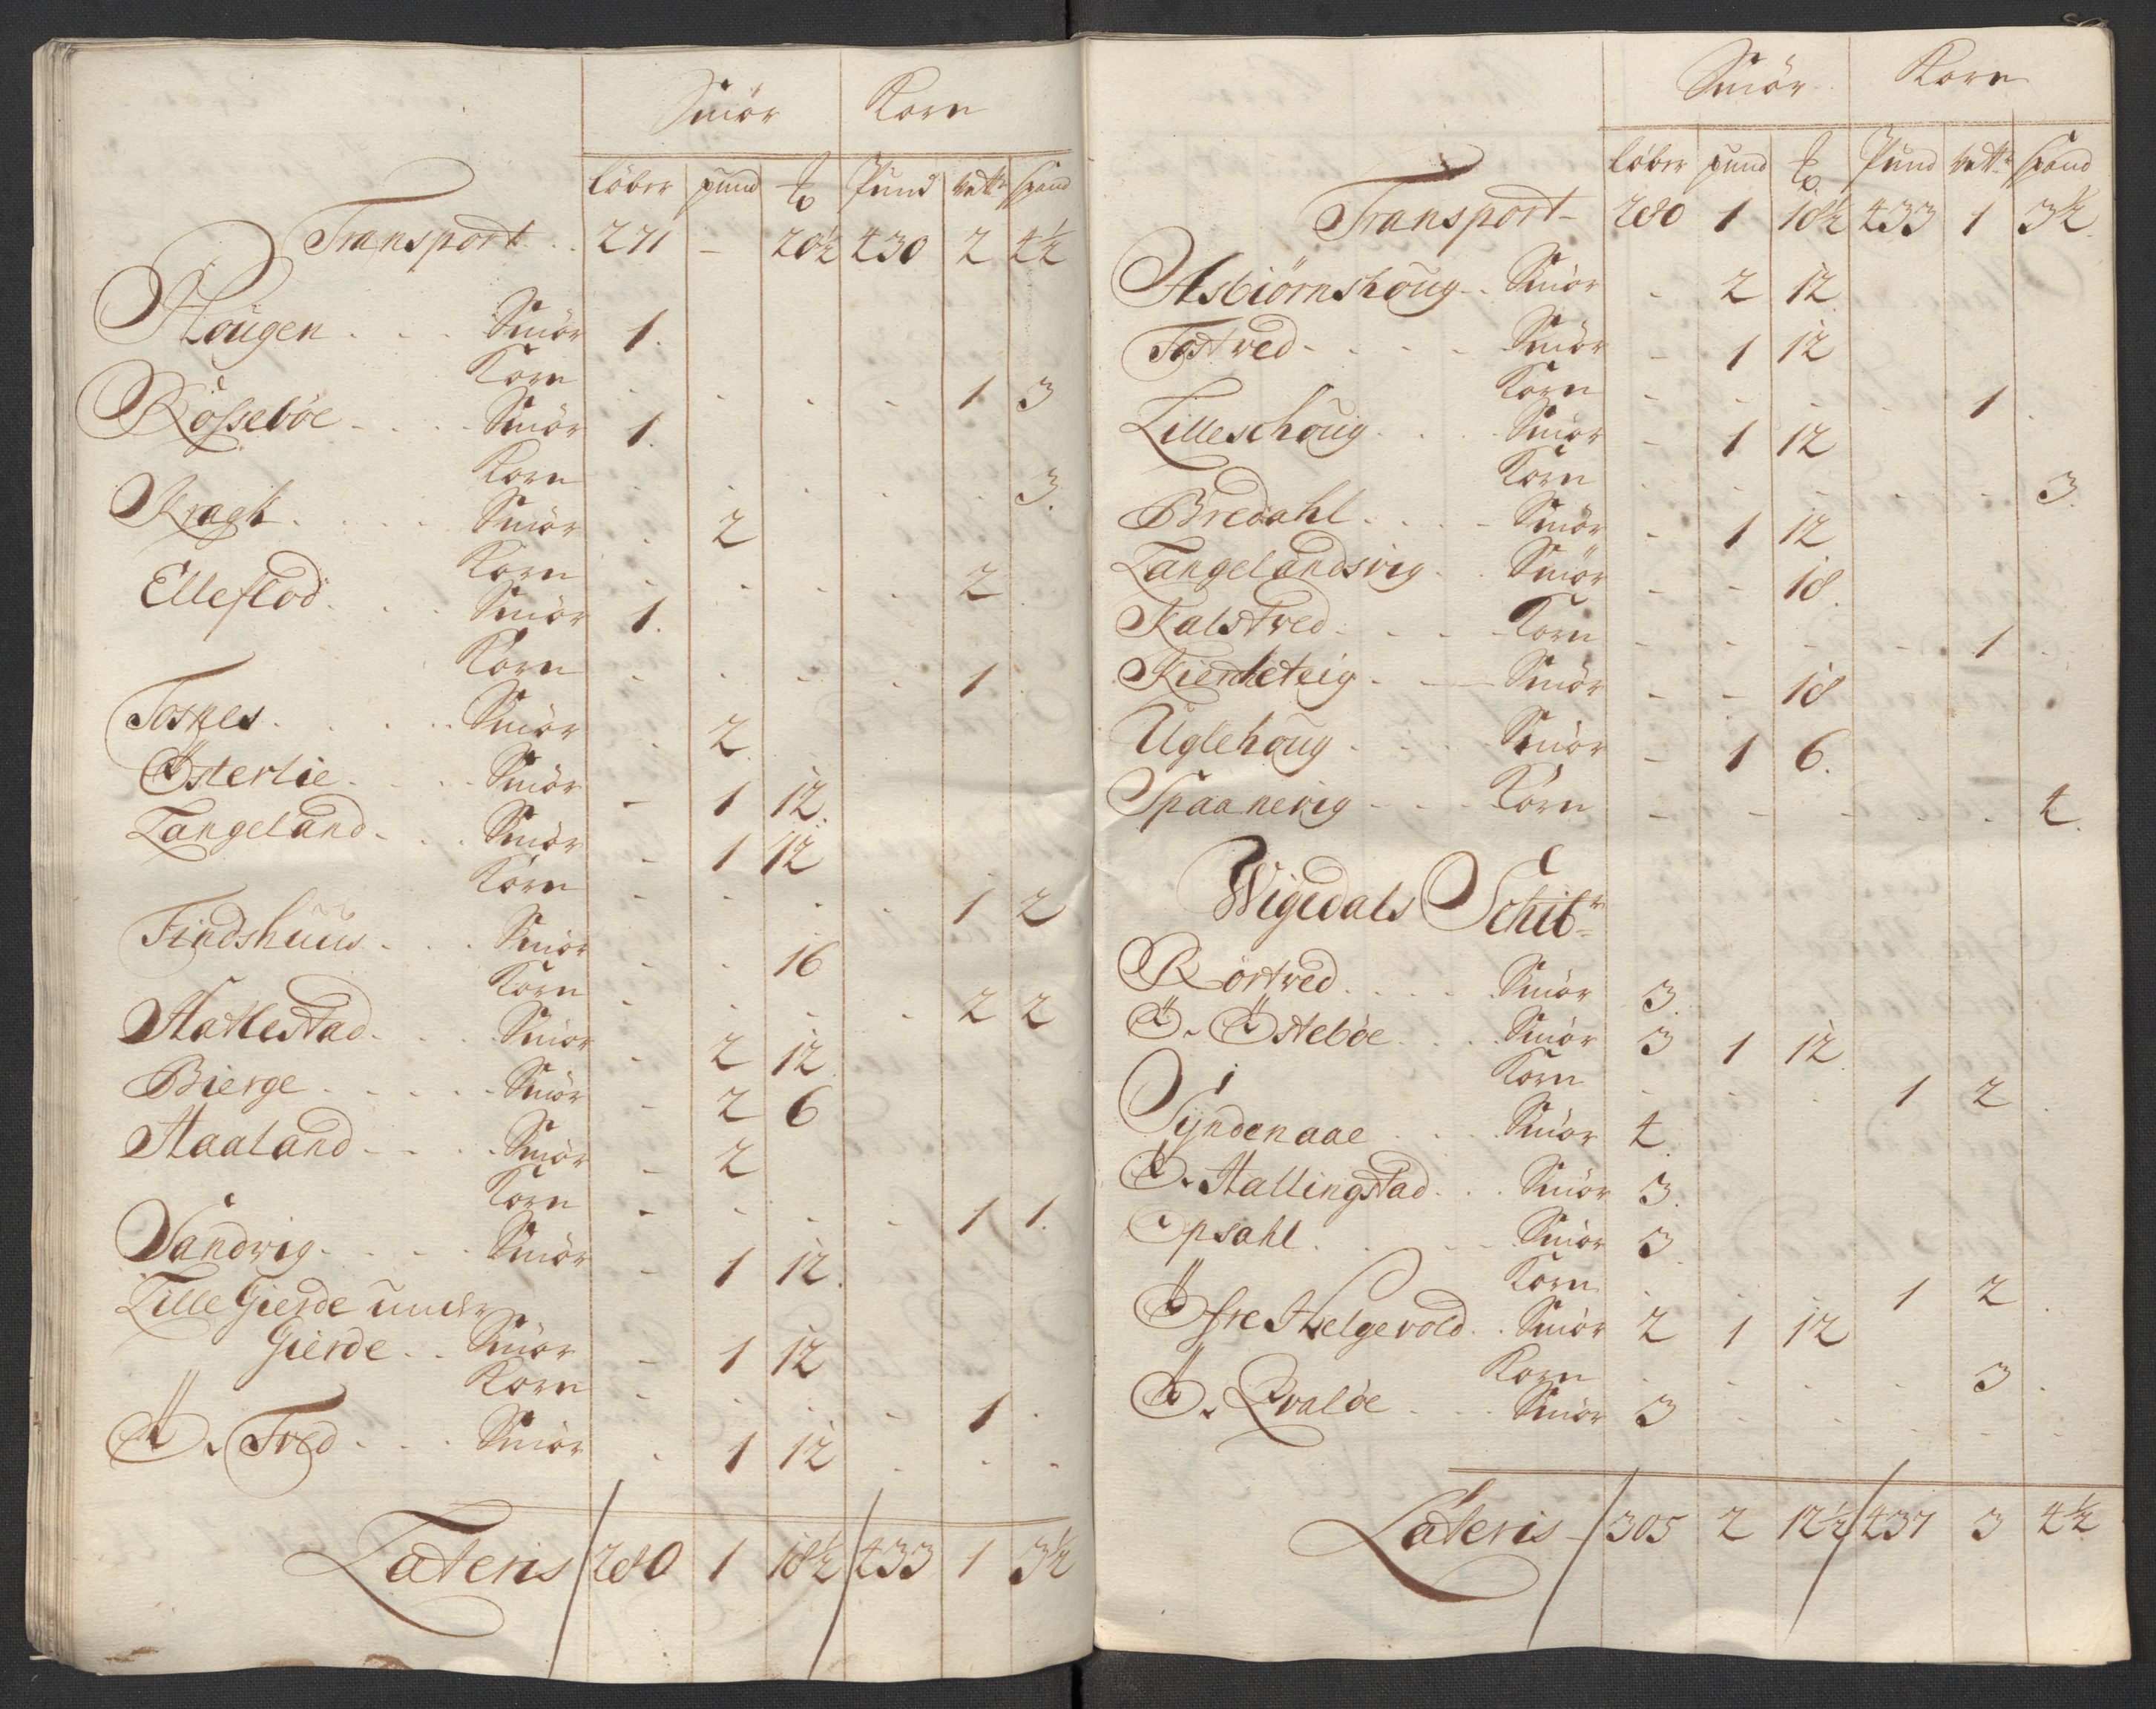 Smör Korn
löber pund ℔ Pund vett: spand
Transport . . 271 – 20½ 430 2 4½
Hougen . . . Smör 1.
Korn . . . . 1 3
Rösseböe . . . . Smör 1.
Korn . . . . . 3.
Kragh . . . . Smör . 2
Korn . . . . 2 .
Elleflod . . . Smör 1.
Korn . . . . 1 .
Toskes . . . . . Smör . 2
Österlie . . . . Smör – 1 12.
Langeland . . . Smör – 1 12
Korn . . . . 1 2
Findshuus . . . Smör . . 16
Korn . . . . 2 2
Hatlestad . . . Smör . 2 12
Bierge . . . . . Smör – 2 6
Haaland . . . . Smör – 2
Korn . . . . 1 1.
Sandvig . . . . Smör – 1 12.
Lille Gierde under
Gierde . . Smör – 1 12
Korn . . . . 1 .
Ö. Tved . . . Smör . 1 12 . . .
Lateris 280 1 18½ 433 1 3½

Smör Korn
löber pund ℔ Pund vett: spand
Transport – 280 1 18½ 433 1 3½
Asbiörnshoug . . Smör . 2 12
Tostved . . . . Smör – 1 12
Korn . . . . 1 .
Lilleschoug . . . Smör – 1 12
Korn . . . . . 3.
Bredahl . . . . Smör – 1 12
Langelandsvig . . Smör – – 18.
Kalstved . . . . Korn – . . . 1 .
Kierheteig . – Smör – – 18
Uglehoug . . . Smör – 1 6.
Spaanevig . . . Korn – – . . . 4.
Wigedals Schibr
Rörtved . . . . Smör 3.
Ö. Östeböe . . . Smör 3 1 12
Korn . . . 1 2 .
Syndenaae . . . Smör 4.
Ö. Hallingstad . . . Smör 3.
Opsahl . . . . Smör 3.
Korn . . . 1 2 .
Öfre Helgevold . . Smör 2 1 12
Korn . . . . 3 .
Ö. Qvalöe . . . Smör 3 . . . . .
Lateris – 305 2 12½ 437 3 4½